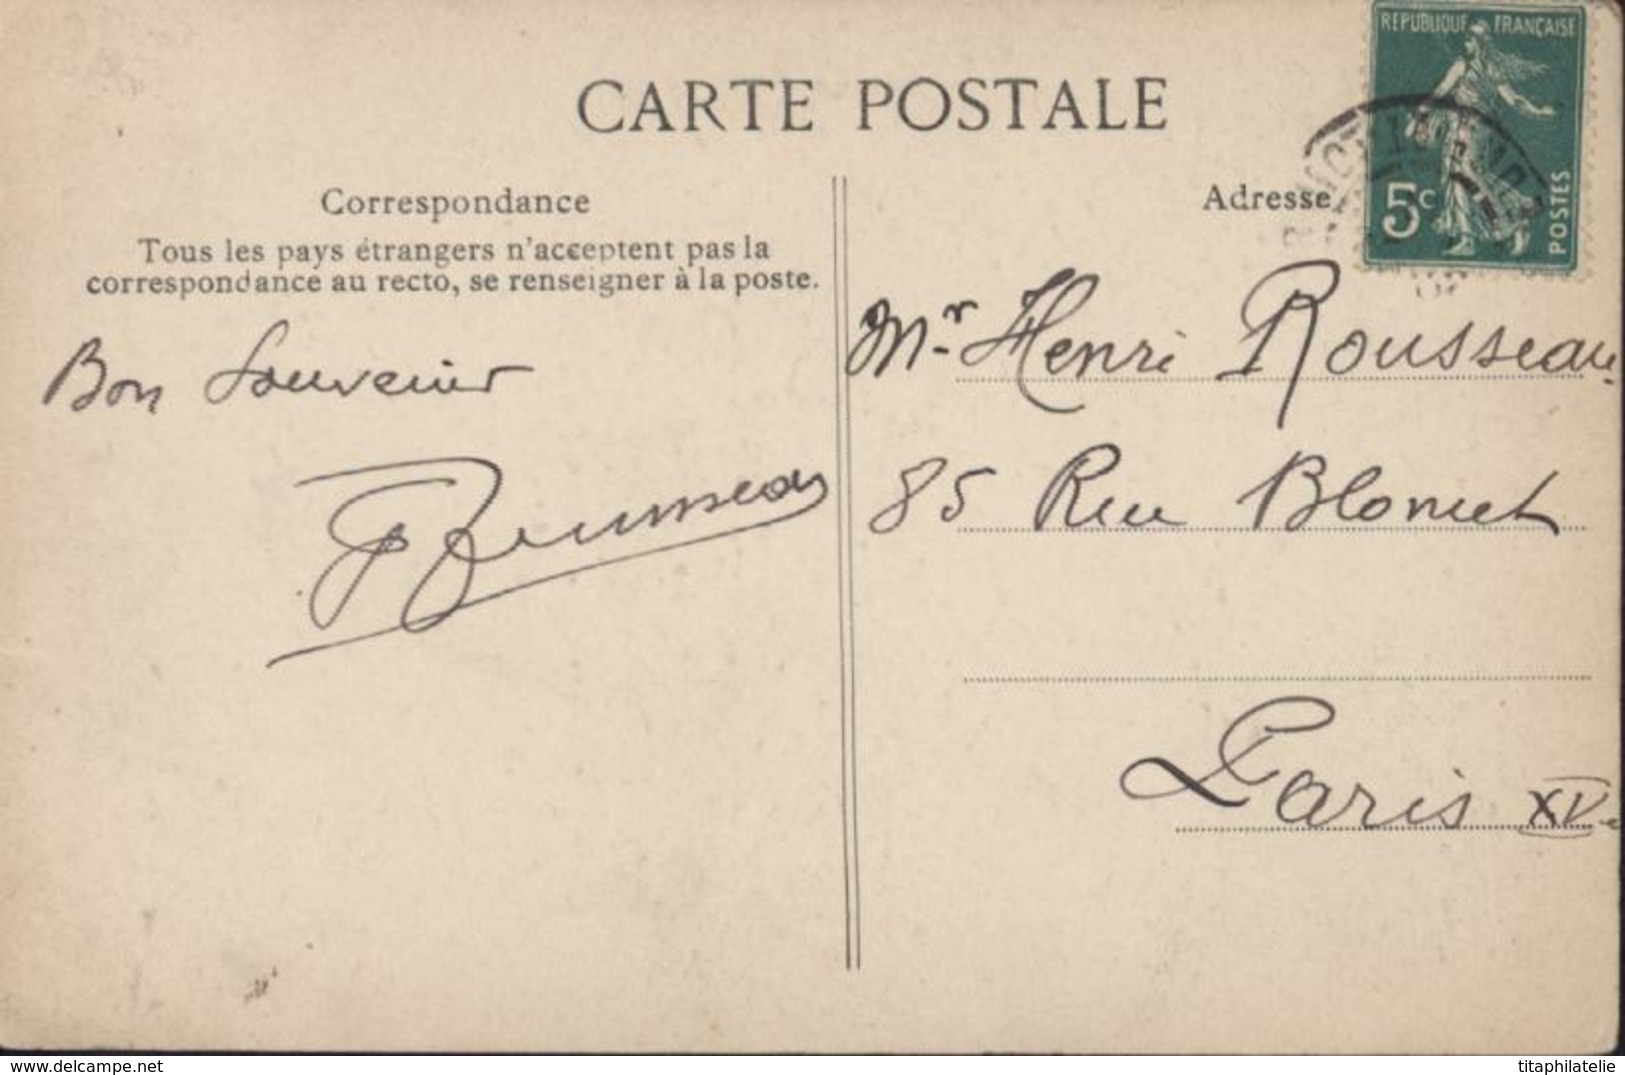 CARTE POSTALE
Correspondance
Tous les pays étrangers n'acceptent pas la
correspondance au recto, se renseigner à la poste.
Bon Souvenir
Rousseau
Adresse
REPUBLIQUE FRANÇAISE
5c
POSTES
Mr Henri Rousseau
85 Rue Blomet
Paris XVe
www.delcampe.net
titaphilatelie